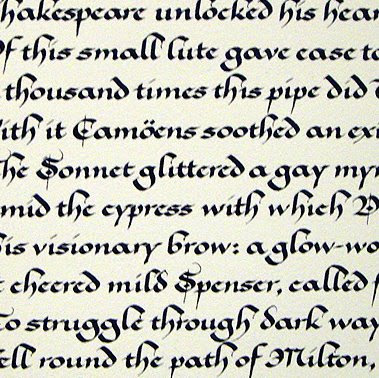 hakespeare unlocked his hear
Of this small lute gave ease to
thousand times this pipe did
ith it Camöens soothed an exi
he Sonnet glittered a gay myr
mid the cypress with which D
is visionary brow: a glow-wo
t cheered mild Spenser, called f
To struggle through dark way
ell round the path of Milton,